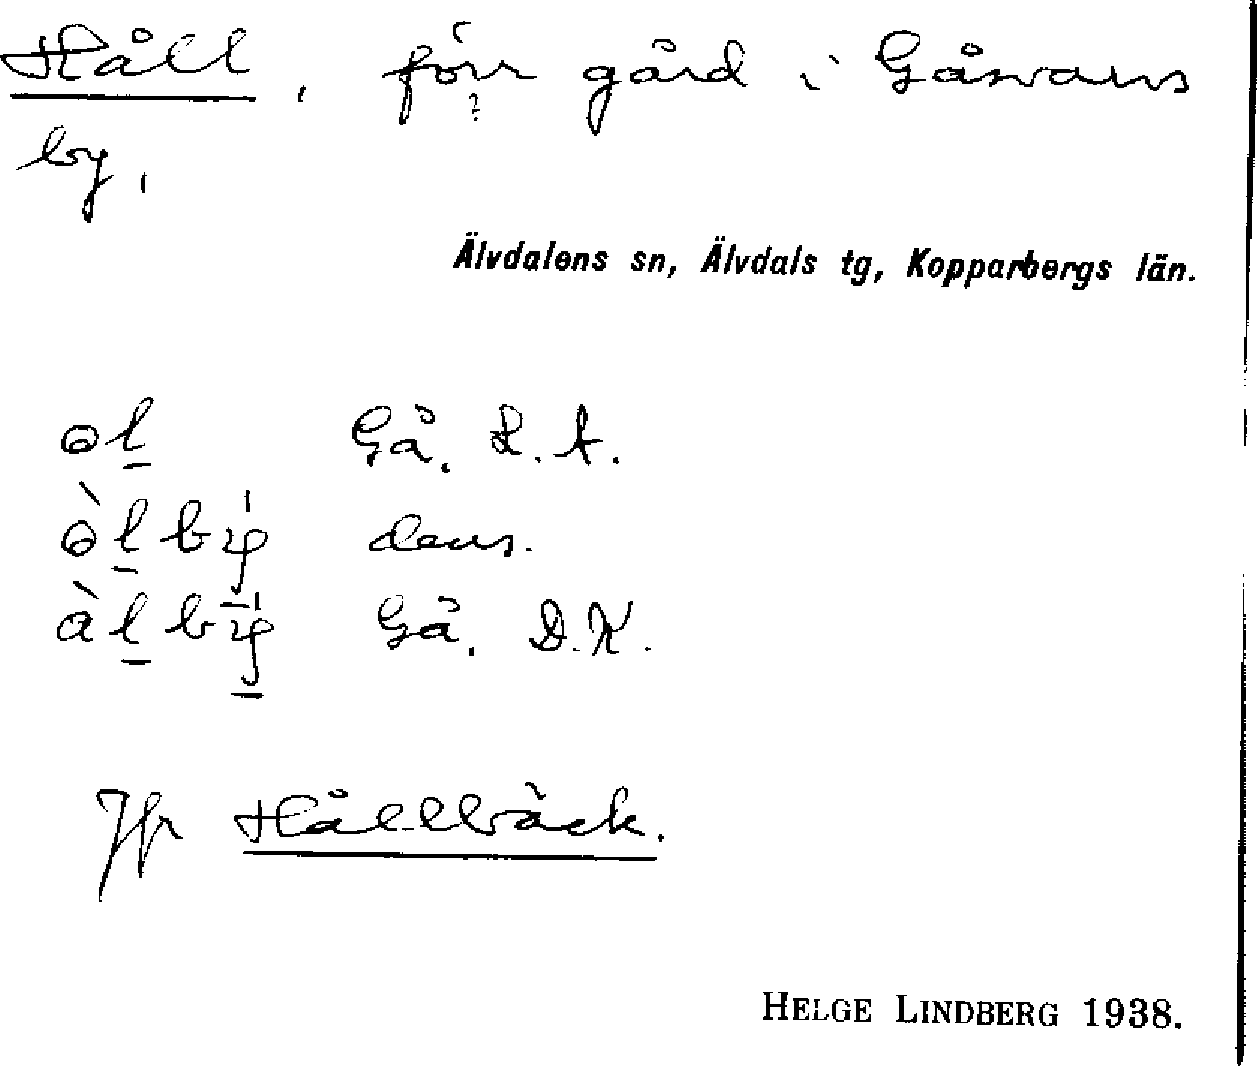 Håll, förr gård i Gåsvarvs
by.
Älvdalens sn, Älvdals tg, Kopparbergs län.
Gå. L.A.
dens.
Gå. D.K.
Jfr Hållbäck.
HELGE LINDBERG 1938.